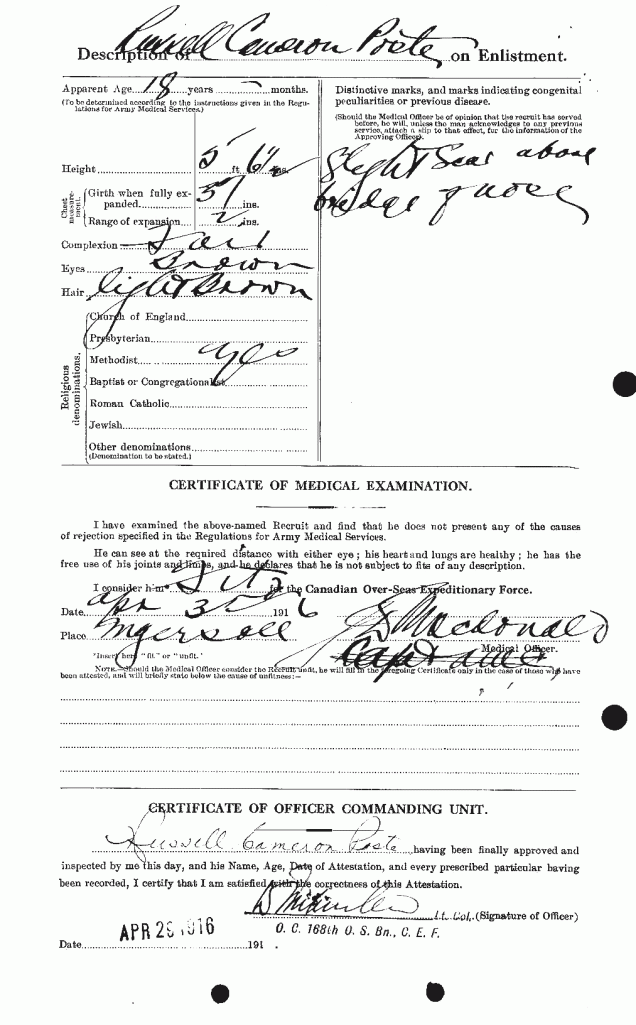 Description of Russell Cameron Poste on Enlistment.
Apparent Age 18 years months.
(To be determined according to the instructions given in the Regulations for Army Medical Services.)
Height 5 ft 6½ ins.
Chest measurement.
Girth when fully expanded 37 ins.
Range of expansion 2 ins.
Complexion Fair
Eyes Brown
Hair light Brown
Religious denominations.
Church of England
Presbyterian
Methodist yes
Baptist or Congregationalist
Roman Catholic
Jewish
Other denominations
(Denomination to be stated.)
Distinctive marks, and marks indicating congenital
peculiarities or previous disease.
(Should the Medical Officer be of opinion that the recruit has served
before, he will, unless the man acknowledges to any previous
service, attach a slip to that effect, for the information of the
Approving Officer).
Slight Scar above
bridge of nose
CERTIFICATE OF MEDICAL EXAMINATION.
I have examined the above-named Recruit and find that he does not present any of the causes
of rejection specified in the Regulations for Army Medical Services.
He can see at the required distance with either eye; his heart and lungs are healthy; he has the
free use of his joints and limbs, and he declares that he is not subject to fits of any description.
I consider him* Fit for the Canadian Over-Seas Expeditionary Force.
Date apr 191 6
Place Ingersoll
Macdonald
Medical Officer.
Capt
*Insert here "fit" or "unfit."
NOTE.—Should the Medical Officer consider the Recruit unfit, he will fill in the foregoing Certificate only in the case of those who have
been attested, and will briefly state below the cause of unfitness:—
CERTIFICATE OF OFFICER COMMANDING UNIT.
Russell Cameron Poste having been finally approved and
inspected by me this day, and his Name, Age, Date of Attestation, and every prescribed particular having
been recorded, I certify that I am satisfied with the correctness of this Attestation.
Lt. Col. (Signature of Officer)
O. C. 168th O. S. Bn., C. E. F.
APR 29 1916
Date 191 .